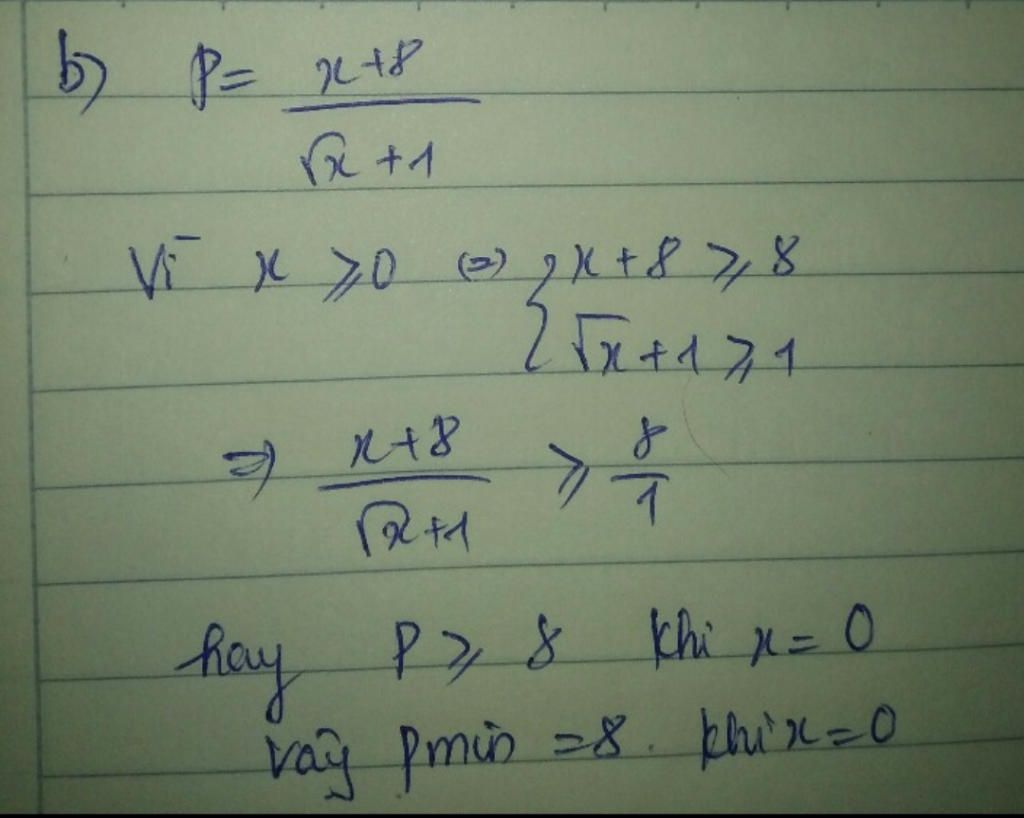 b) P = x+8 / √x +1
Vì x ⩾ 0 (=) { x + 8 ⩾ 8
√x + 1 ⩾ 1
=) x+8 / √x+1 ⩾ 8/1
hay P ⩾ 8 khi x = 0
vậy Pmin = 8. khi x = 0